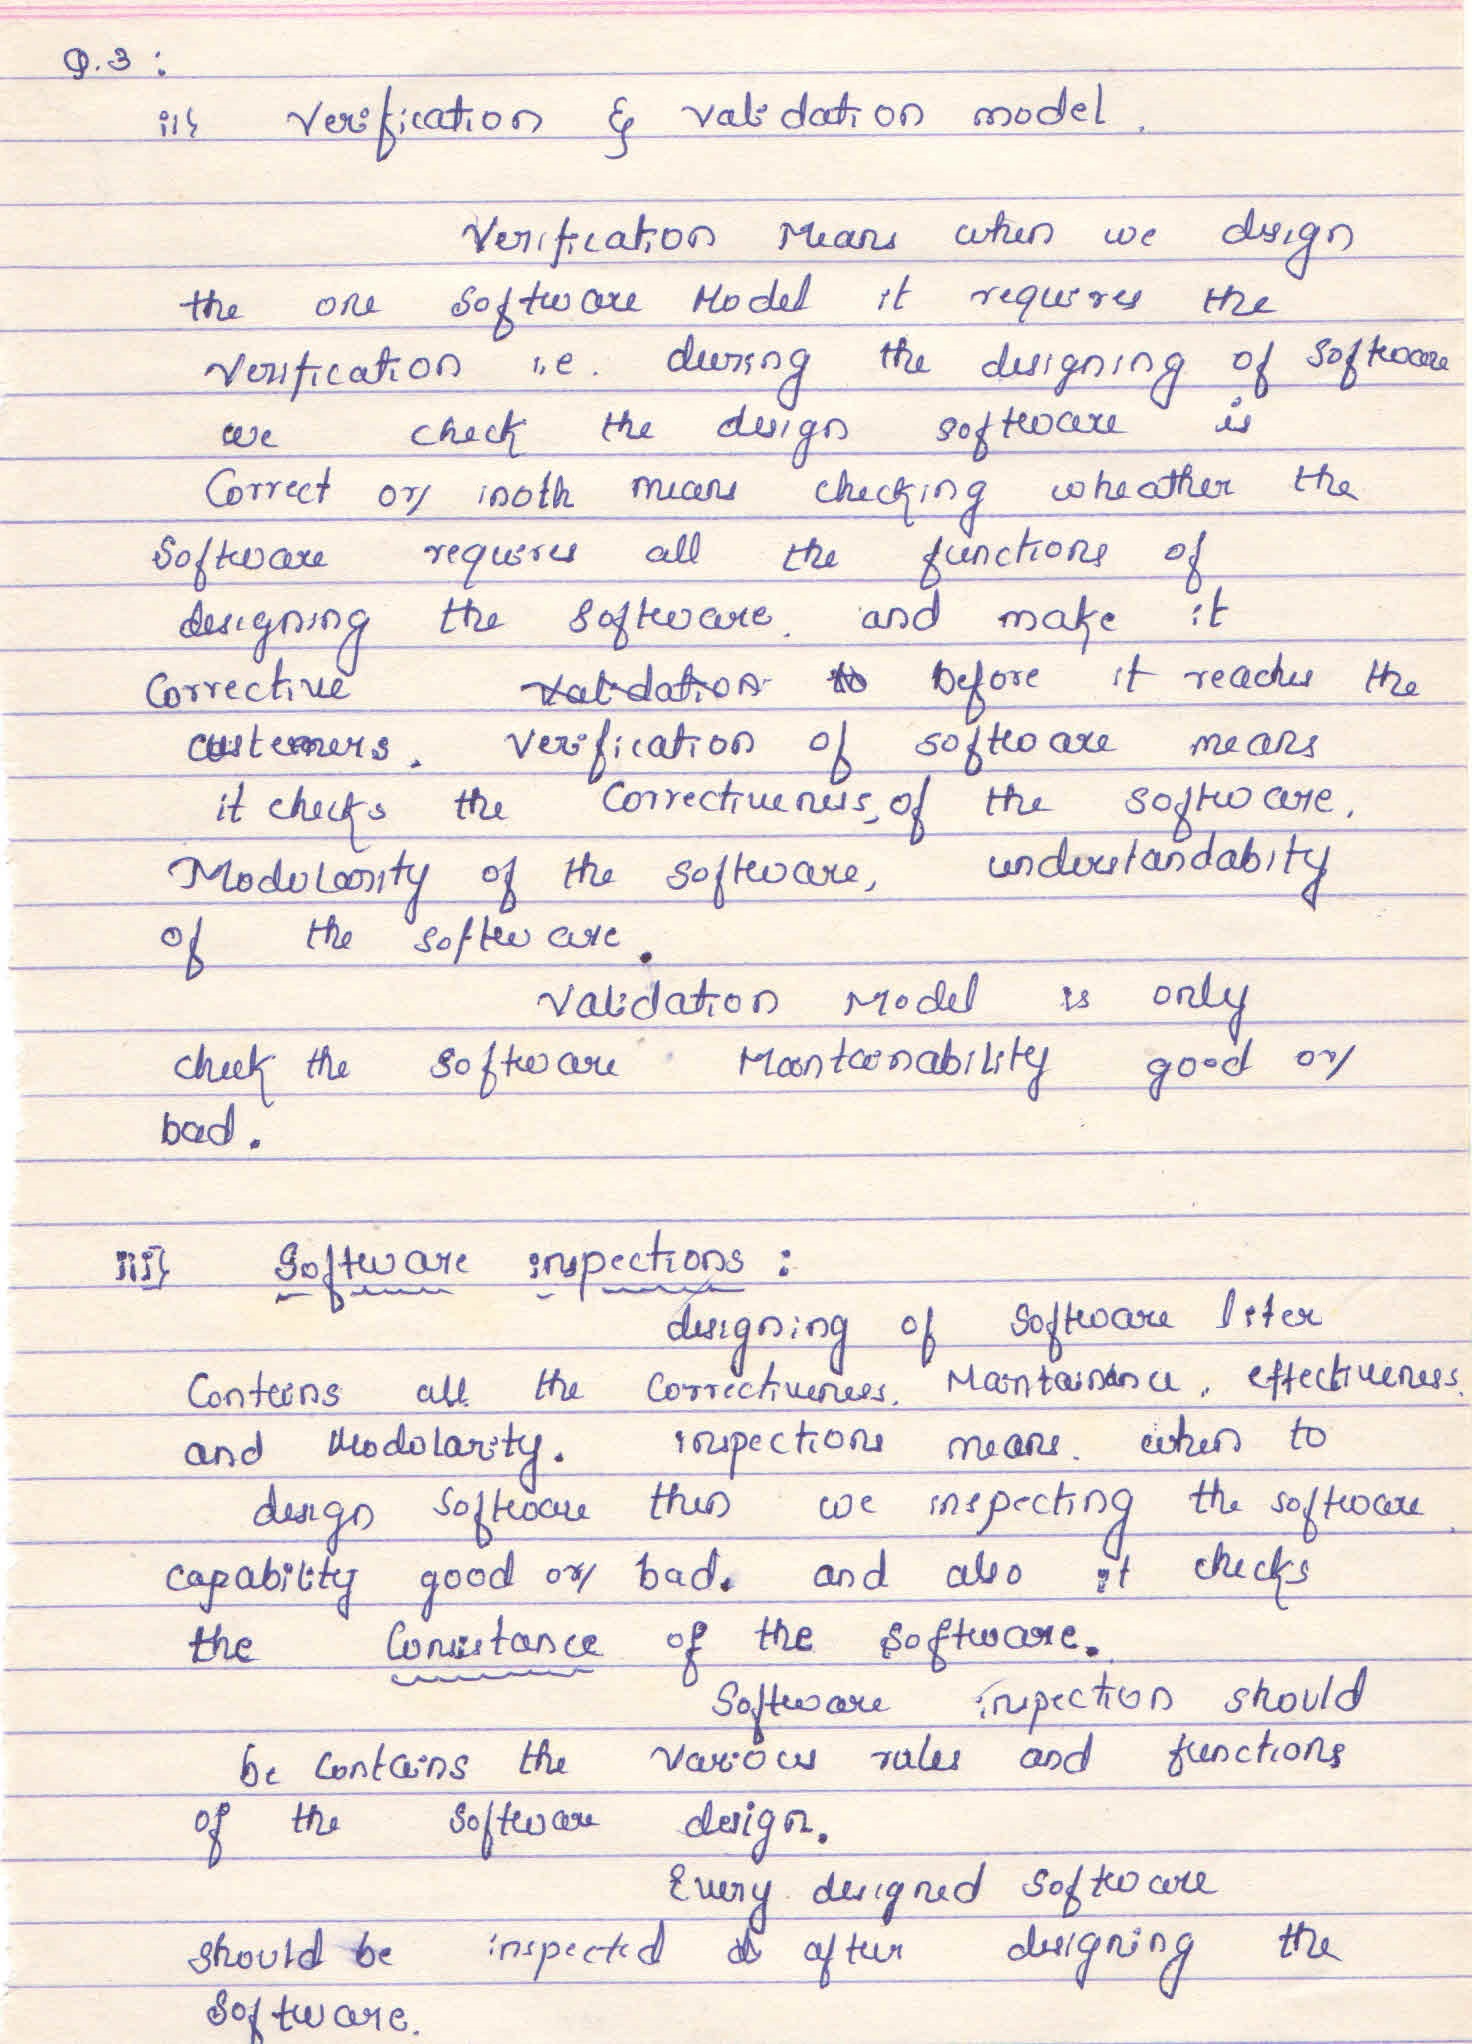 Q.3 :
ii} Verification & Validation model.
Verification Means when we design
the one software Model it requires the
Verification i.e. during the designing of software
we check the design software is
Correct or means checking wheather the
Software requires all the functions of
designing the software. and make it
Corrective Validation to before it reaches the
customers. Verification of software means
it checks the Correctiveness, of the software.
Modularity of the software, understandabity
of the software.
Validation Model is only
check the software Maintainability good or
bad.
iii} Software inspections :
designing of software
Contains all the Correctiveness. Maintainance, effectiveness.
and Modularity. inspections means. when to
design software then we inspecting the software
capability good or bad. and also it checks
the Consistance of the software.
Software inspection should
be contains the various rules and functions
of the software design.
Every designed software
should be inspected after designing the
software.